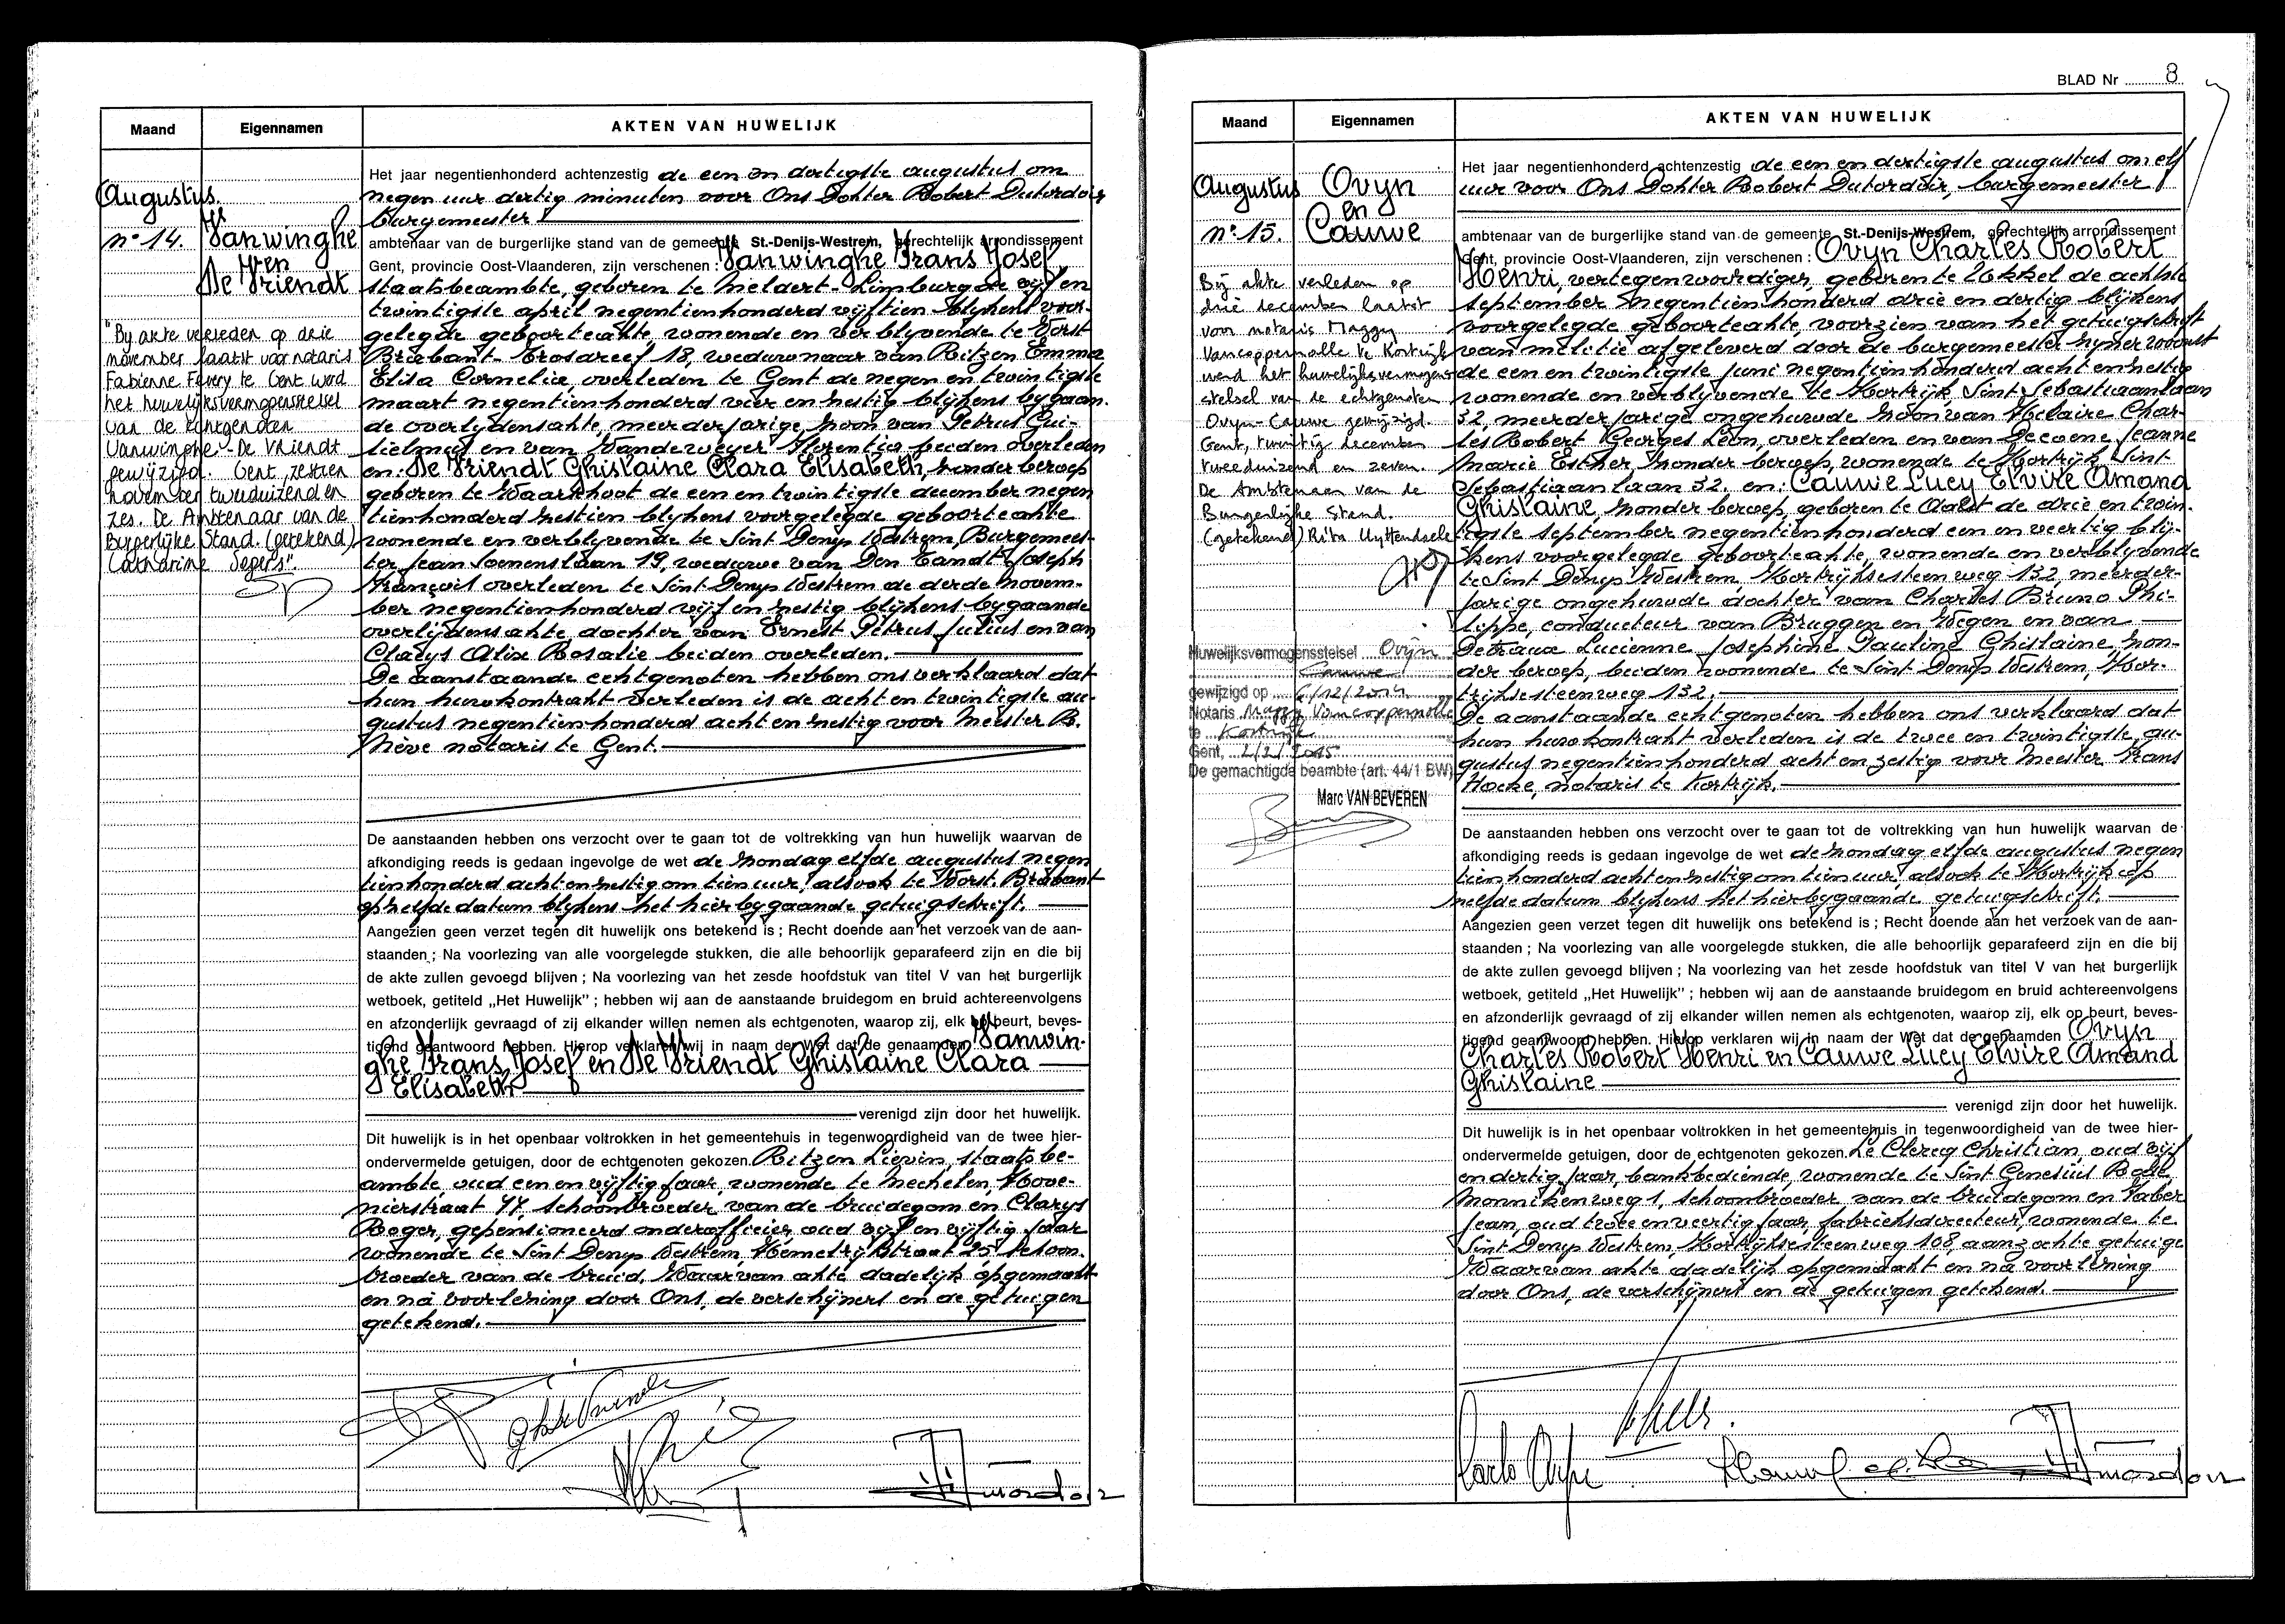 Maand
Eigennamen
AKTEN VAN HUWELIJK
Augustus
nº 14.
Vanwinghe
en
De Vriendt
"By akte verleden op drie
november laatst voor notaris
Fabienne Fevery te Gent werd
het huwelijksvermogenstelsel
van de echtgenoten
Vanwinghe - De Vriendt
gewijzigd. Gent, zestien
november tweeduizend en
zes. De Ambtenaar van de
Burgerlijke Stand. (getekend)
Catharine Segers".
Het jaar negentienhonderd achtenzestig de een en dertigste augustus om
negen uur dertig minuten voor Ons Dokter Robert Dutordoir
burgemeester
ambtenaar van de burgerlijke stand van de gemeente St.-Denijs-Westrem, gerechtelijk arrondissement
Gent, provincie Oost-Vlaanderen, zijn verschenen : Vanwinghe Frans Josef
staatsbeambte, geboren te Meldert-Limburg de vijf en
twintigste april negentienhonderd vijftien blijkens voor-
gelegde geboorteakte, wonende en verblyvende te Vorst
Brabant- 18, weduwnaar van Ritzen Emma
Elisa Cornelia, overleden te Gent de negen en twintigste
maart negentienhonderd vier en zestig blijkens bygaan-
de overlydensakte, meerderjarige zoon van Petrus Gui-
lielmus en van Vandeweyer Florentia beiden overleden
en: De Vriendt Ghislaine Clara Elisabeth, zonder beroep
geboren te Waarschoot de een en twintigste december negen
tienhonderd zestien blykens voorgelegde geboorteakte
wonende en verblyvende te Sint Denys Westrem Burgemees-
ter Jean Soenenslaan 19, weduwe van Den Tandt Joseph
François overleden te Sint Denys Westrem de derde novem-
ber negentienhonderd vijf en zestig blijkens bygaande
overlijdensakte dochter van Ernest Petrus Julius en van
Claeys Alix Rosalie beiden overleden.
De aanstaande echtgenoten hebben ons verklaard dat
hun huwkontrakt verleden is de acht en twintigste au-
gustus negentienhonderd acht en zestig voor Meester R.
Nève notaris te Gent.
De aanstaanden hebben ons verzocht over te gaan tot de voltrekking van hun huwelijk waarvan de
afkondiging reeds is gedaan ingevolge de wet de zondag elfde augustus negen
tienhonderd acht en zestig om tien uur, alsook te Vorst. Brabant
op zelfde datum blykens het hierbygaande getuigschrift.
Aangezien geen verzet tegen dit huwelijk ons betekend is ; Recht doende aan het verzoek van de aan-
staanden ; Na voorlezing van alle voorgelegde stukken, die alle behoorlijk geparafeerd zijn en die bij
de akte zullen gevoegd blijven ; Na voorlezing van het zesde hoofdstuk van titel V van het burgerlijk
wetboek, getiteld „Het Huwelijk" ; hebben wij aan de aanstaande bruidegom en bruid achtereenvolgens
en afzonderlijk gevraagd of zij elkander willen nemen als echtgenoten, waarop zij, elk op beurt, beves-
tigend geantwoord hebben. Hierop verklaren wij in naam der Wet dat de genaamden Vanwin-
ghe Frans Josef en De Vriendt Ghislaine Clara
Elisabeth
verenigd zijn door het huwelijk.
Dit huwelijk is in het openbaar voltrokken in het gemeentehuis in tegenwoordigheid van de twee hier-
ondervermelde getuigen, door de echtgenoten gekozen. Ritzen Lievin, staatsbe-
ambte, oud een en vijftig jaar, wonende te Mechelen, Hove-
nierstraat 47, schoonbroeder van de bruidegom en Claeys
Roger, gepensioneerd onderofficier, oud vijf en vijftig jaar
wonende te Sint Denys Westrem, Hemelrijkstraat 25 schoon-
broeder van de bruid. Waarvan akte dadelijk opgemaakt
en na voorlezing door Ons, de verschijners en de getuigen
getekend.
BLAD Nr 8
Maand
Eigennamen
AKTEN VAN HUWELIJK
Augustus
nº 15.
Ovyn
en
Cauwe
Bij akte verleden op
drie december laatst
voor notaris Maggy
Vancoppernolle te Kortrijk
werd het huwelijksvermogens
stelsel van de echtgenoten
Ovyn-Cauwe gewijzigd.
Gent, twintig december
tweeduizend en zeven.
De Ambtenaar van de
Burgerlijke Stand.
(getekend) Rita Uyttendaele
Huwelijksvermogensstelsel Ovyn
Cauwe
gewijzigd op /12/2014
Notaris Maggy Vancoppernolle
te Kortrijk
Gent, 2/2/2015
De gemachtigde beambte (art. 44/1 BW)
Marc VAN BEVEREN
Het jaar negentienhonderd achtenzestig de een en dertigste augustus om elf
uur voor Ons Dokter Robert Dutordoir, burgemeester
ambtenaar van de burgerlijke stand van de gemeente St.-Denijs-Westrem, gerechtelijk arrondissement
Gent, provincie Oost-Vlaanderen, zijn verschenen : Ovyn Charles Robert
Henri, vertegenwoordiger, geboren te Ukkel de achtste
september negentienhonderd drie en dertig blijkens
voorgelegde geboorteakte, voorzien van het getuigschrift
van militie afgeleverd door de burgemeester zyner woonst
de een en twintigste juni negentienhonderd acht en zestig
wonende en verblijvende te Kortrijk Sint Sebastiaanlaan
32, meerderjarige ongehuwde zoon van Hilaire Char-
les Robert Georges Léon, overleden en van Decoene Jeanne
Marie Esther, zonder beroep, wonende te Kortrijk Sint-
Sebastiaanlaan 32. en: Cauwe Lucy Elvire Amand
Ghislaine, zonder beroep, geboren te Aalst de drie en twin-
tigste september negentienhonderd een en veertig blij-
kens voorgelegde geboorteakte, wonende en verblyvende
te Sint Denys Westrem Kortrijksesteenweg 132, meerder-
jarige ongehuwde dochter van Charles Bruno Phi-
lippe, conducteur van Bruggen en Wegen en van
Detraux Lucienne Josephine Pauline Ghislaine, zon-
der beroep, beiden wonende te Sint Denys Westrem, Kor-
trijksesteenweg 132.
De aanstaande echtgenoten hebben ons verklaard dat
hun huwkontrakt verleden is de twee en twintigste au-
gustus negentienhonderd acht en zestig voor Meester Frans
Hocke, notaris te Kortrijk.
De aanstaanden hebben ons verzocht over te gaan tot de voltrekking van hun huwelijk waarvan de
afkondiging reeds is gedaan ingevolge de wet de zondag elfde augustus negen
tienhonderd acht en zestig om tien uur, alsook te Kortrijk op
zelfde datum blijkens het hierbygaande getuigschrift.
Aangezien geen verzet tegen dit huwelijk ons betekend is ; Recht doende aan het verzoek van de aan-
staanden ; Na voorlezing van alle voorgelegde stukken, die alle behoorlijk geparafeerd zijn en die bij
de akte zullen gevoegd blijven ; Na voorlezing van het zesde hoofdstuk van titel V van het burgerlijk
wetboek, getiteld „Het Huwelijk" ; hebben wij aan de aanstaande bruidegom en bruid achtereenvolgens
en afzonderlijk gevraagd of zij elkander willen nemen als echtgenoten, waarop zij, elk op beurt, beves-
tigend geantwoord hebben. Hierop verklaren wij in naam der Wet dat de genaamden Ovyn
Charles Robert Henri en Cauwe Lucy Elvire Amand
Ghislaine
verenigd zijn door het huwelijk.
Dit huwelijk is in het openbaar voltrokken in het gemeentehuis in tegenwoordigheid van de twee hier-
ondervermelde getuigen, door de echtgenoten gekozen. Le Clercq Christian, oud vijf
en dertig jaar, bankbediende, wonende te Sint Genesius Rode
Monnikenweg 1, schoonbroeder van de bruidegom en Faber
Jean, oud twee en veertig jaar, fabrieksdirecteur wonende te
Sint Denys Westrem, Kortrijksesteenweg 108, aanzochte getuige
Waarvan akte dadelijk opgemaakt en na voorlezing
door Ons, de verschijners en de getuigen getekend.